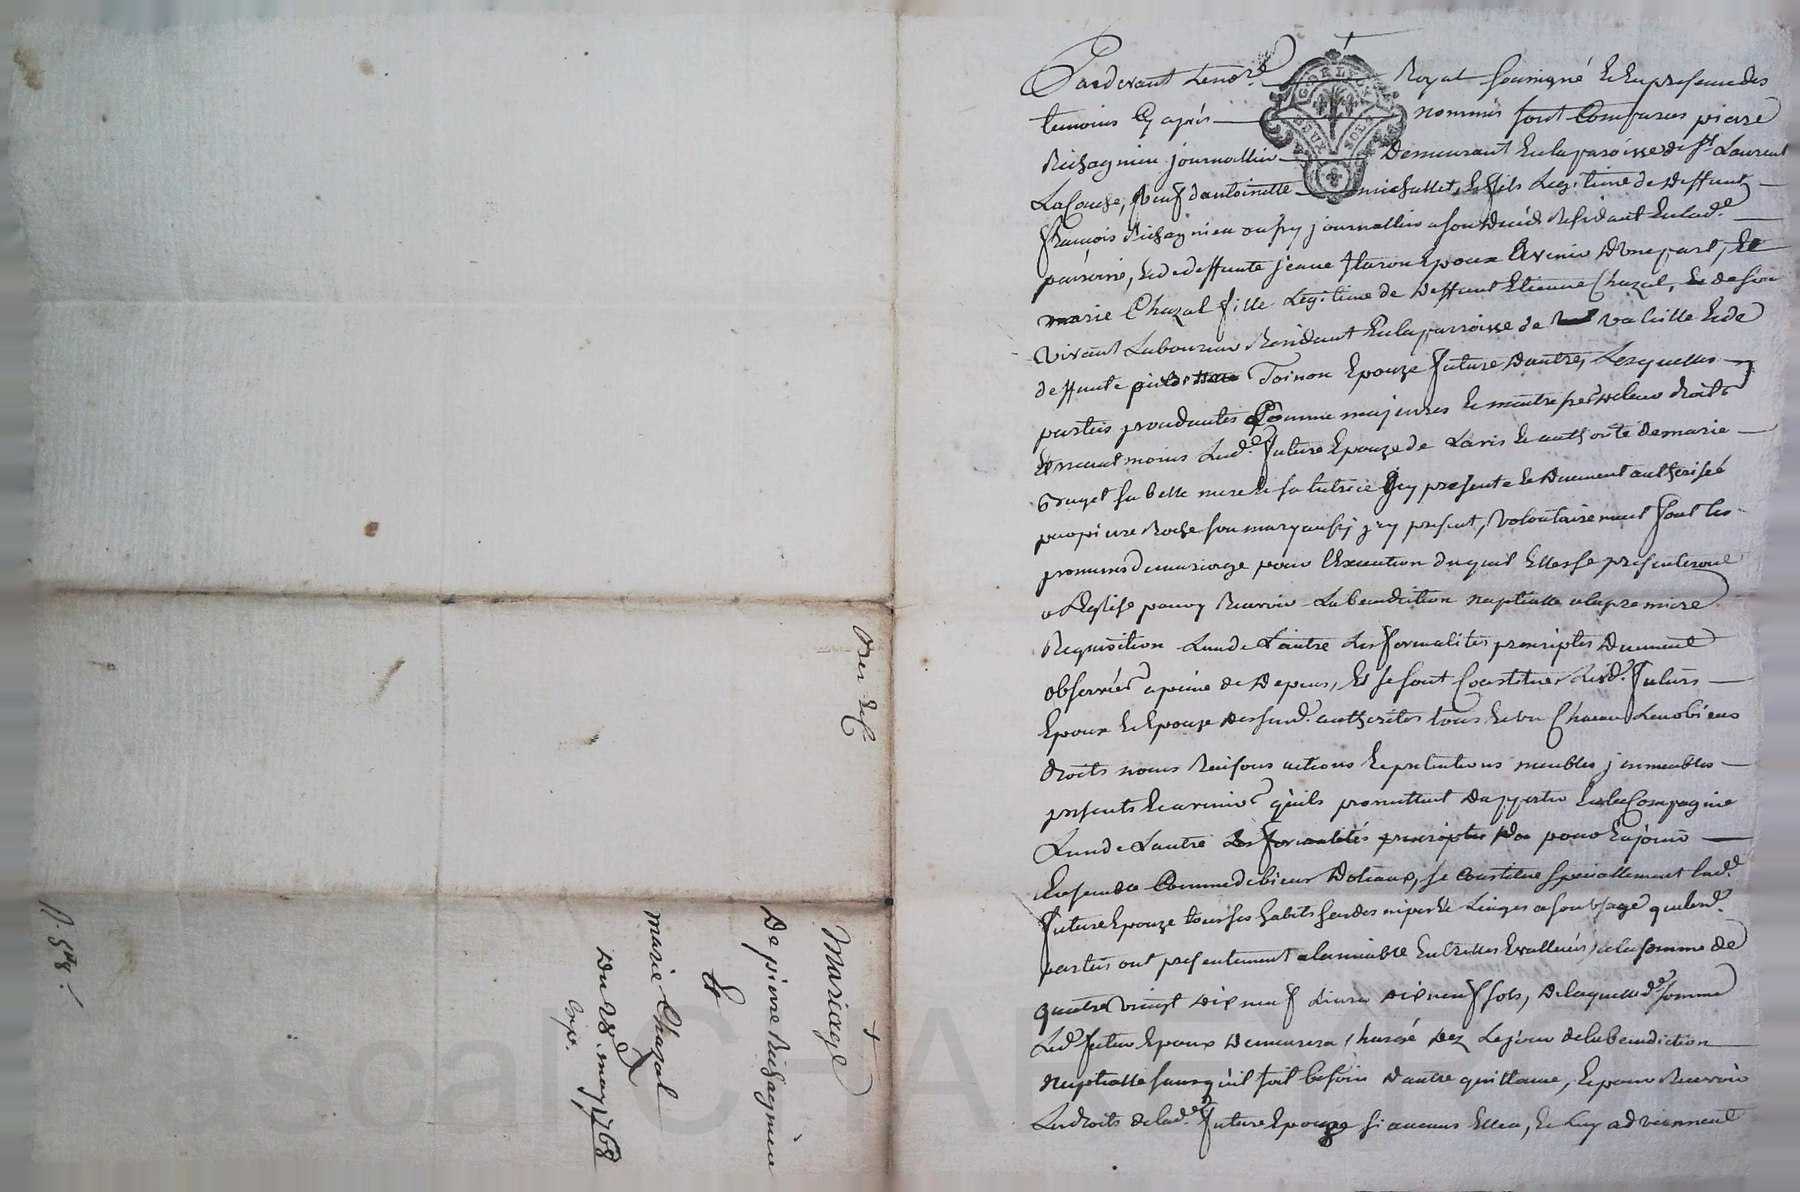 Pardevant Lenore Royal soussigné Et en presence des
temoins Cy aprés nommés sont Comparus pierre
Richagnieu journallier Demeurant En la paroisse de St. Laurent
La Couche, veuf d'antoinette michallet, Et fils Legitime de Deffunt
François Richagnieu aussy journallier a son Decés Residant En lade.
paroisse, Et de deffunte jeane Epoux Avenir D'une part, Et
marie Chazal fille Legitime de Deffunt Etienne Chazal, de son
vivant Laboureur Residant En la parroisse de valeille Et de
deffunte Toinon Epouze future D'autre, Lesquelles
parties procedantes Comme majeures Et maitresses de leur droits
Et neantmoins Lade. future Epouze de Lavis Et authorité de marie
sa belle mere Et sa tutrice Icy presente Et Duement authorisée
par pierre Roche son mary aussy jcy present, volontairement font les
promesses de mariage pour L'Execution duquel Elles se presenteront
a L'Eglise pour y Recevoir La benediction nuptialle a la premiere
Requisition L'un de L'autre Les formalités prescriptes Duement
observées a peine de Depens, Et se sont Constitués Lesd. futurs
Epoux Et Epouze Desd. authorités tous Et un Chacun Leurs biens
droits noms Raisons actions Et pretentions meubles jmmeubles
presents Et avenir qu'ils promettent D'apporter En la Compagnie
L'un de L'autre Les formalités prescriptes pour En jouir
Ensemble Comme de biens Dotaux, se Constitue specialement lade.
future Epouze tous ses habits hardes nipes Et Linges a son usage que lesd.
parties ont presentement a lamiable Entr'elles Evallués a la somme de
quatre vingt Dix neuf Livres Dix neuf sols, De laquelle de. somme
Led. futur Epoux Demeurera Chargé Dez Le jour de la benediction
Nuptialle sans qu'il soit besoin D'autre quittance, Et pour Recevoir
Les droits de lade. future Epouze si aucuns Elle a, Et Luy adviennent
GDE LYON
DEUX SOLS
Mariage
De pierre Richagnieu
Et
marie Chazal
Du 28. may 1768
Expo.